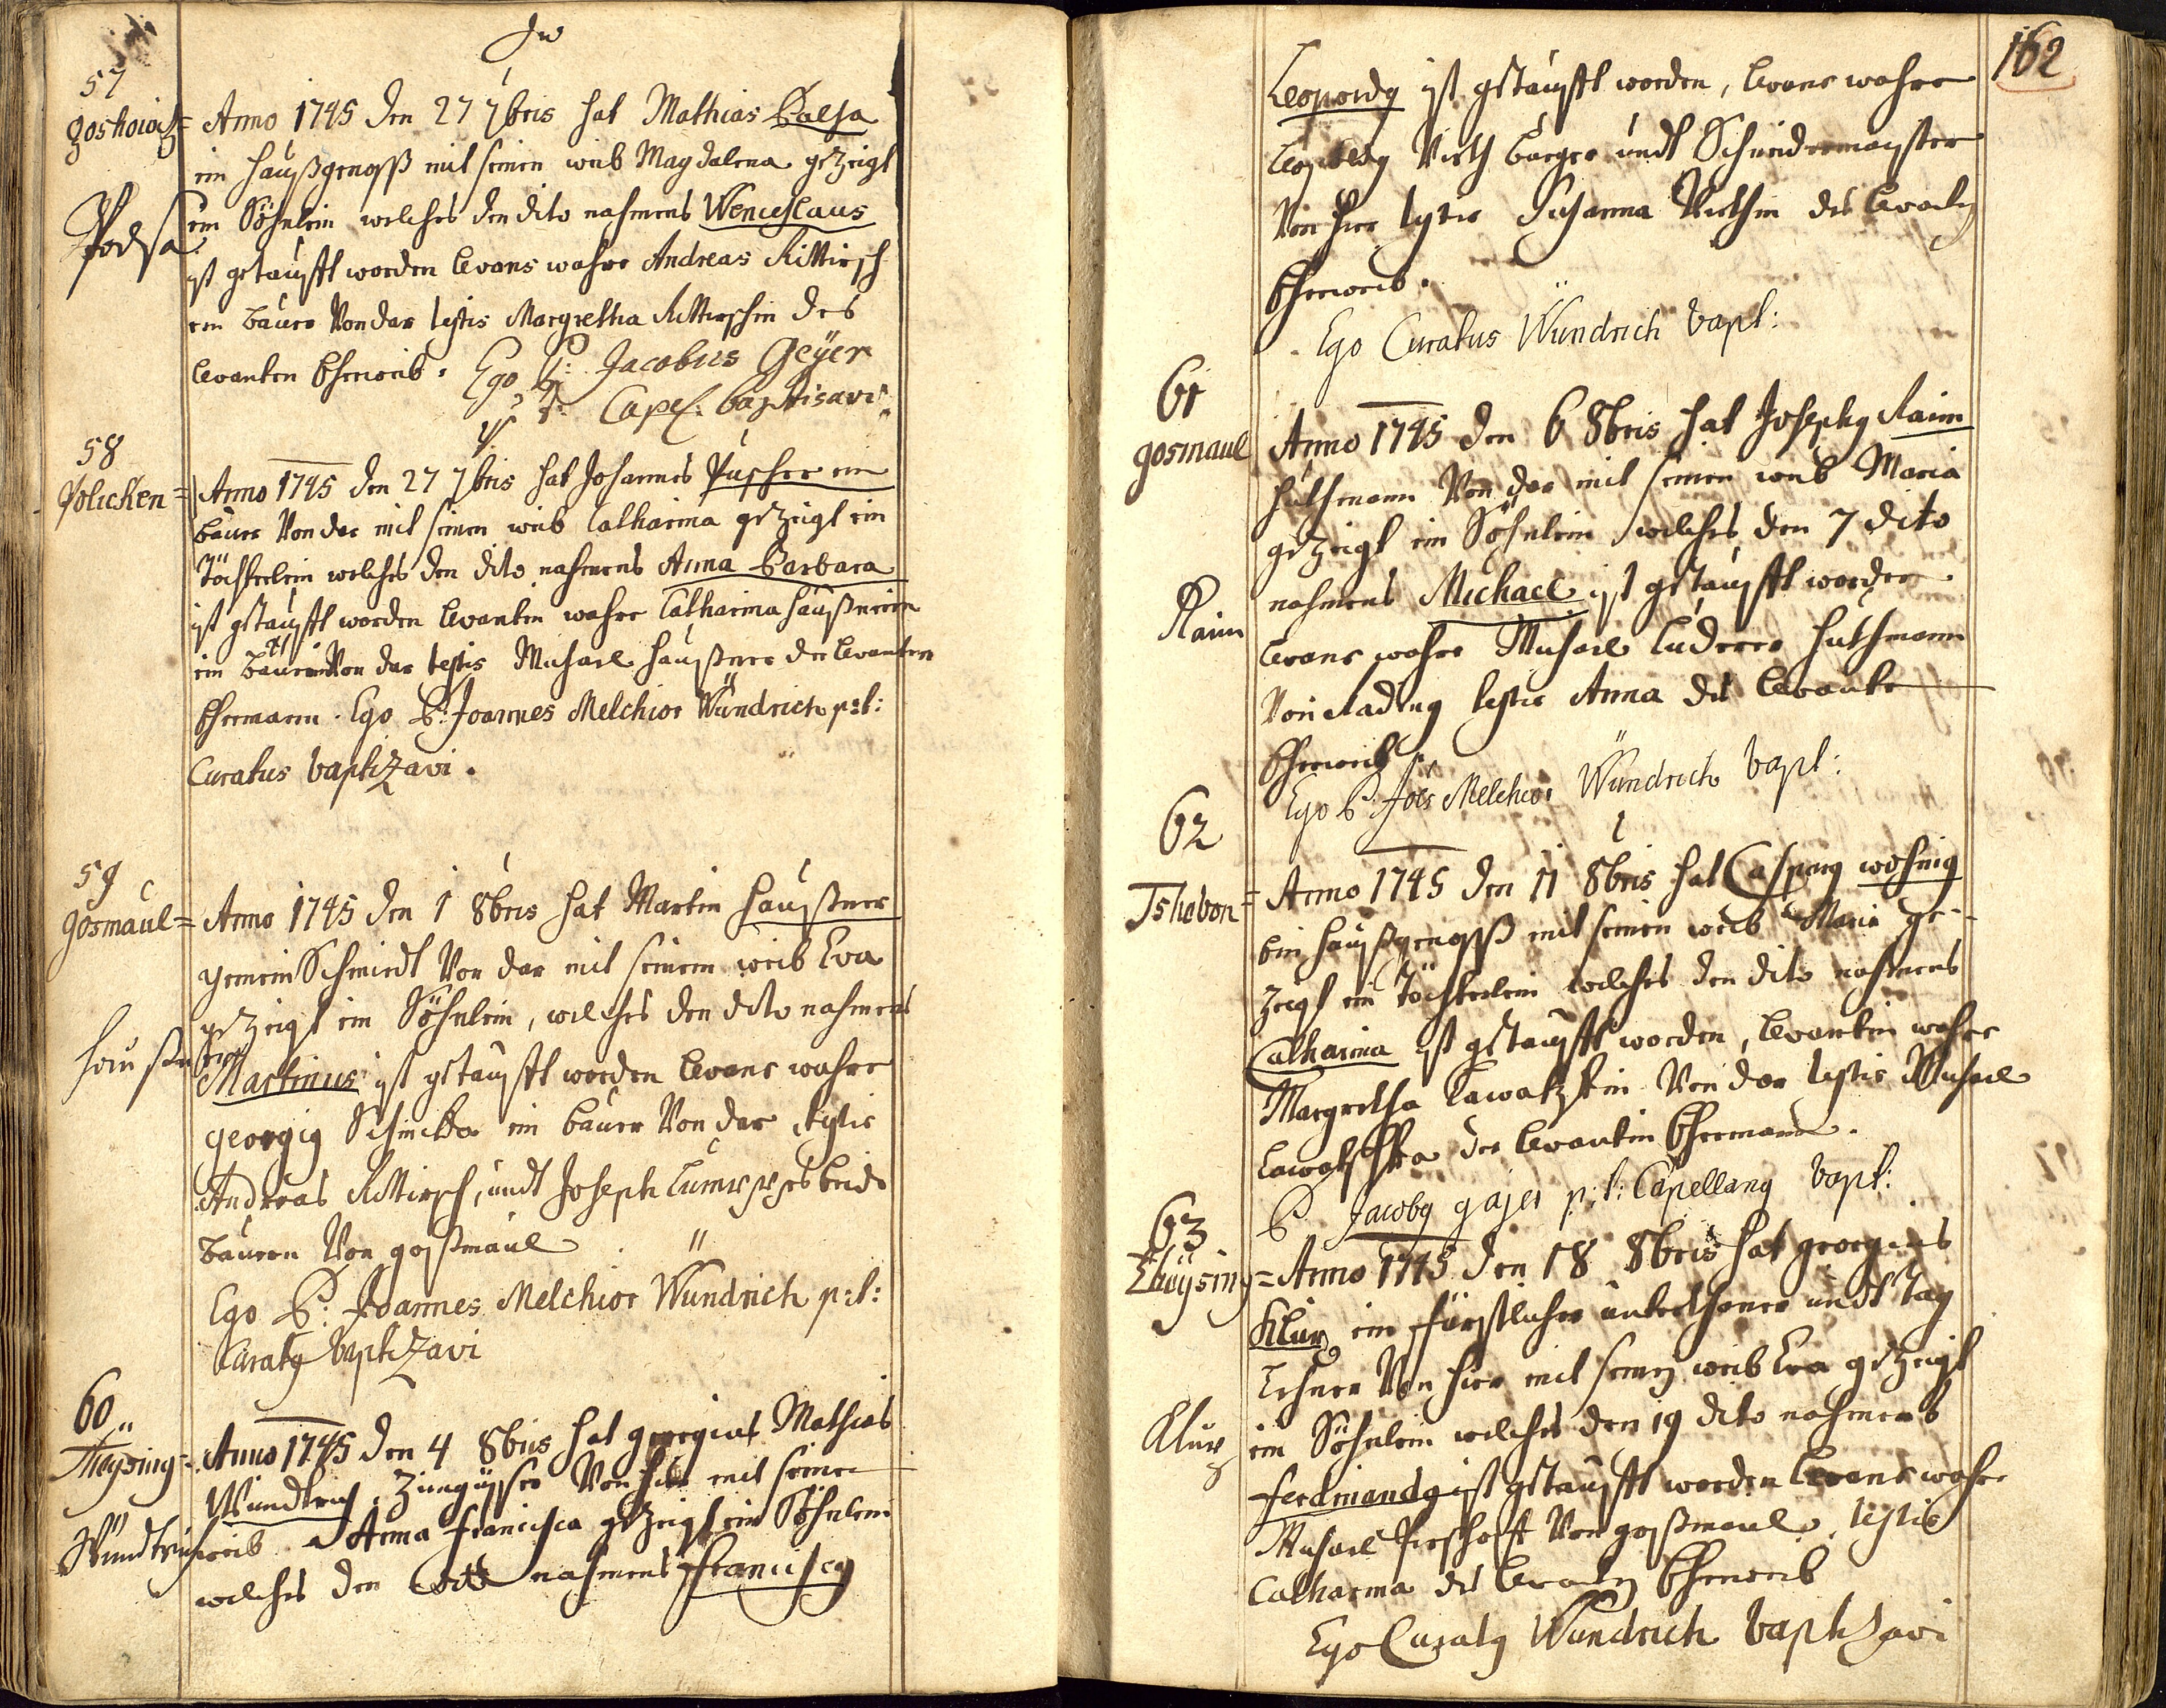 57
Goskowitz= Anno 1745 den 27 7bris hat Mathias Palsa
ein Haußgenoss mit seinen weib Magdalena gezeigt
ein Söhnlein welches den dito nahmens Wenceslaus
Podsa
ist getaufft worden levans wahre Andreas Kittirsch
ein Bauer Von dar testis Margretha Kittirschin des
levanten Eheweib. Ego P: Jacobus Geÿer
p. t. Capel: baptisavi
58
Policken= Anno 1745 den 27 7bris hat Johannes Puscher ein
bauer Von dar mit seinen weib Catharina gezeigt ein
Töchterlein welches den dito nahmens Anna Barbara
ist getaufft worden levantin wahre Catharina Haußnerin
ein Bäurin Von dar testis Michael Haußner der levantin
Ehemann. Ego P: Joannes Melchior Wündrich p:t:
Curatus baptizavi.
59
Gosmaul= Anno 1745 den 1 8bris hat Martin Haußner
gemein Schmiedt Von dar mit seinem weib Eva
gezeigt ein Söhnlein, welches den dito nahmens
Haußner
Martinus ist getaufft worden levans wahre
georgig ein bauer Von dar, testis
Andreas Kittirsch, undt Joseph beide
Bauern Von goßmaul
Ego P: Joannes Melchior Wündrich p:t:
Curatg baptizavi
60
Theysing= Anno 1745 den 4 8bris hat georgius Mathias
Wündtrich, Züngüsser Von hier mit seinen
Wündtrich
weib Anna Francisca gezeigt ein Söhnlein
welches den dito nahmens Franciscg
162
Leopordg ist getaufft worden, levans wahre
Leopoldg Vieth burger undt Schneidermayster
Von hier testis Susanna Viethin des
Eheweib.
Ego Curatus Wündrich bapt:
61
gosmaul Anno 1745 den 6 8bris hat Josephg Raim
Huthmann Von dar mit seinen weib Maria
gezeigt ein Söhnlein welches den 7 dito
Raim
nahmens Michael ist getaufft worden
levans wahre Michael Luderer Huthmann
Von testis Anna des levante
Eheweib
Ego P: Joës Melchior Wündrich bapt:
62
Tschebon= Anno 1745 den 11 8bris hat Casparg wohnig
Ein Haußgenoss mit seinen weib Maria ge-
zeigt ein Töchterlein welches den dito nahmens
Catharina ist getaufft worden, levantin wahre
Margretha Von dar testis Michael
der levantin Ehemann.
P. Jacobg gajer p:t: Capellang bapt:
63
Theysing= Anno 1745 den 18 8bris hat georgius
Klur ein fürstlicher unterthaner undt tag
Lehner Von hier mit seing weib Eva gezeigt
Klur
ein Söhnlein welches den 19 dito nahmens
Ferdinandg ist getaufft worden levans wahre
Michael Von goßmaul, testis
Catharina des Eheweib
Ego Curatg Wündrich baptizavi